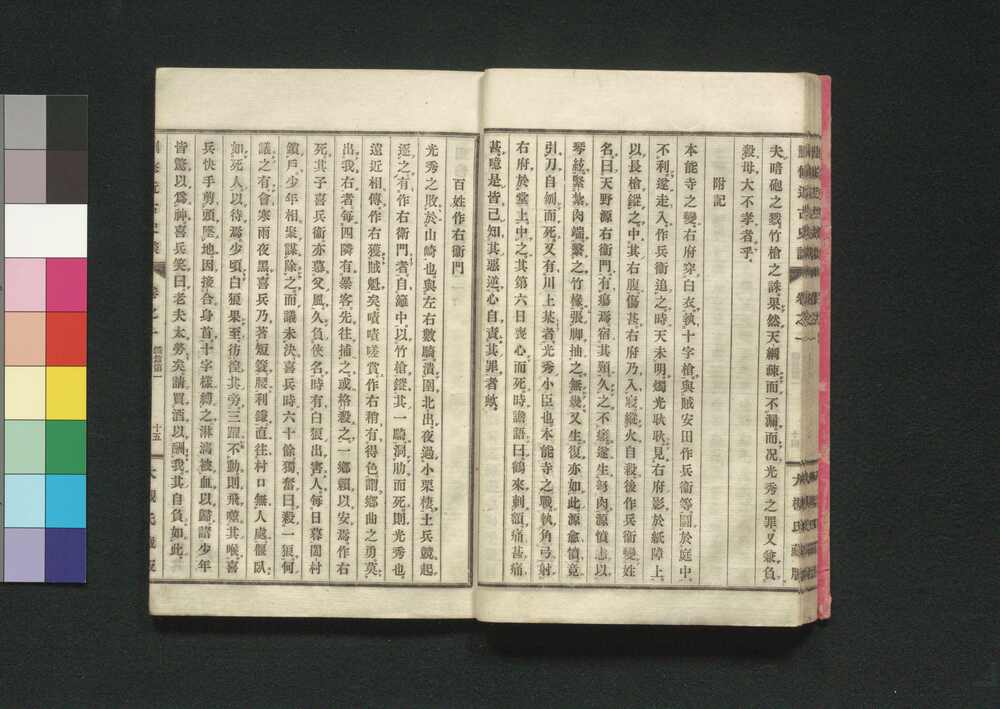 夫暗砲之戮竹槍之誅果然天網疎而不漏而况光秀之罪又兼負
殺母大不孝者乎
附記
本能寺之變右府穿白衣執十字槍與賊安田作兵衞等鬪於庭中
不利遂走入作兵衞追之時天未明燭光耿耿見右府影於紙障上
以長槍鏦之中其右腹傷甚右府乃入寢縱火自殺後作兵衞變姓
名曰天野源右衞門有瘍焉宿其頸久之不癒遂生努肉源愼恚以
琴絃緊紮肉端繫之竹椽張脚抽之無幾又生復亦如此源愈愼竟
引刀自刎而死又有川上某者光秀小臣也本能寺之戰執角弓射
右府於堂上中之其第六日喪心而死時譫語曰鶴來刺額痛甚痛
甚噫是皆已知其惡逆心自責其罪者歟
百姓作右衞門
光秀之敗於山崎也與左右數騎潰圍北出夜過小栗棲土兵競起
逐之有作右衞門者自籬中以竹槍鏦其一騎洞肋而死則光秀也
遠近相傳作右獲賊魁矣嘖嘖嗟賞作右稍有得色謂鄕曲之勇莫
出我右者每四隣有暴客先往捕之或格殺之一鄕賴以安焉作右
死其子喜兵衞亦慕父風久負俠名時有白狼出害人每日暮闔村
鎖戶少年相聚謀除之而議未決喜兵時六十餘獨奮曰殺一狼何
議之有會寒雨夜黑喜兵乃著短簑腰利鎌直往村口無人處偃臥
如死人以待焉少頃白狼果至彷徨其旁三躍不動則飛噬其喉喜
兵快手剪頭墜地因接合身首十字樣縛之淋漓被血以歸諸少年
皆驚以爲神喜兵笑曰老夫太勞矣請買酒以酬我其自負如此
卷之一
十五